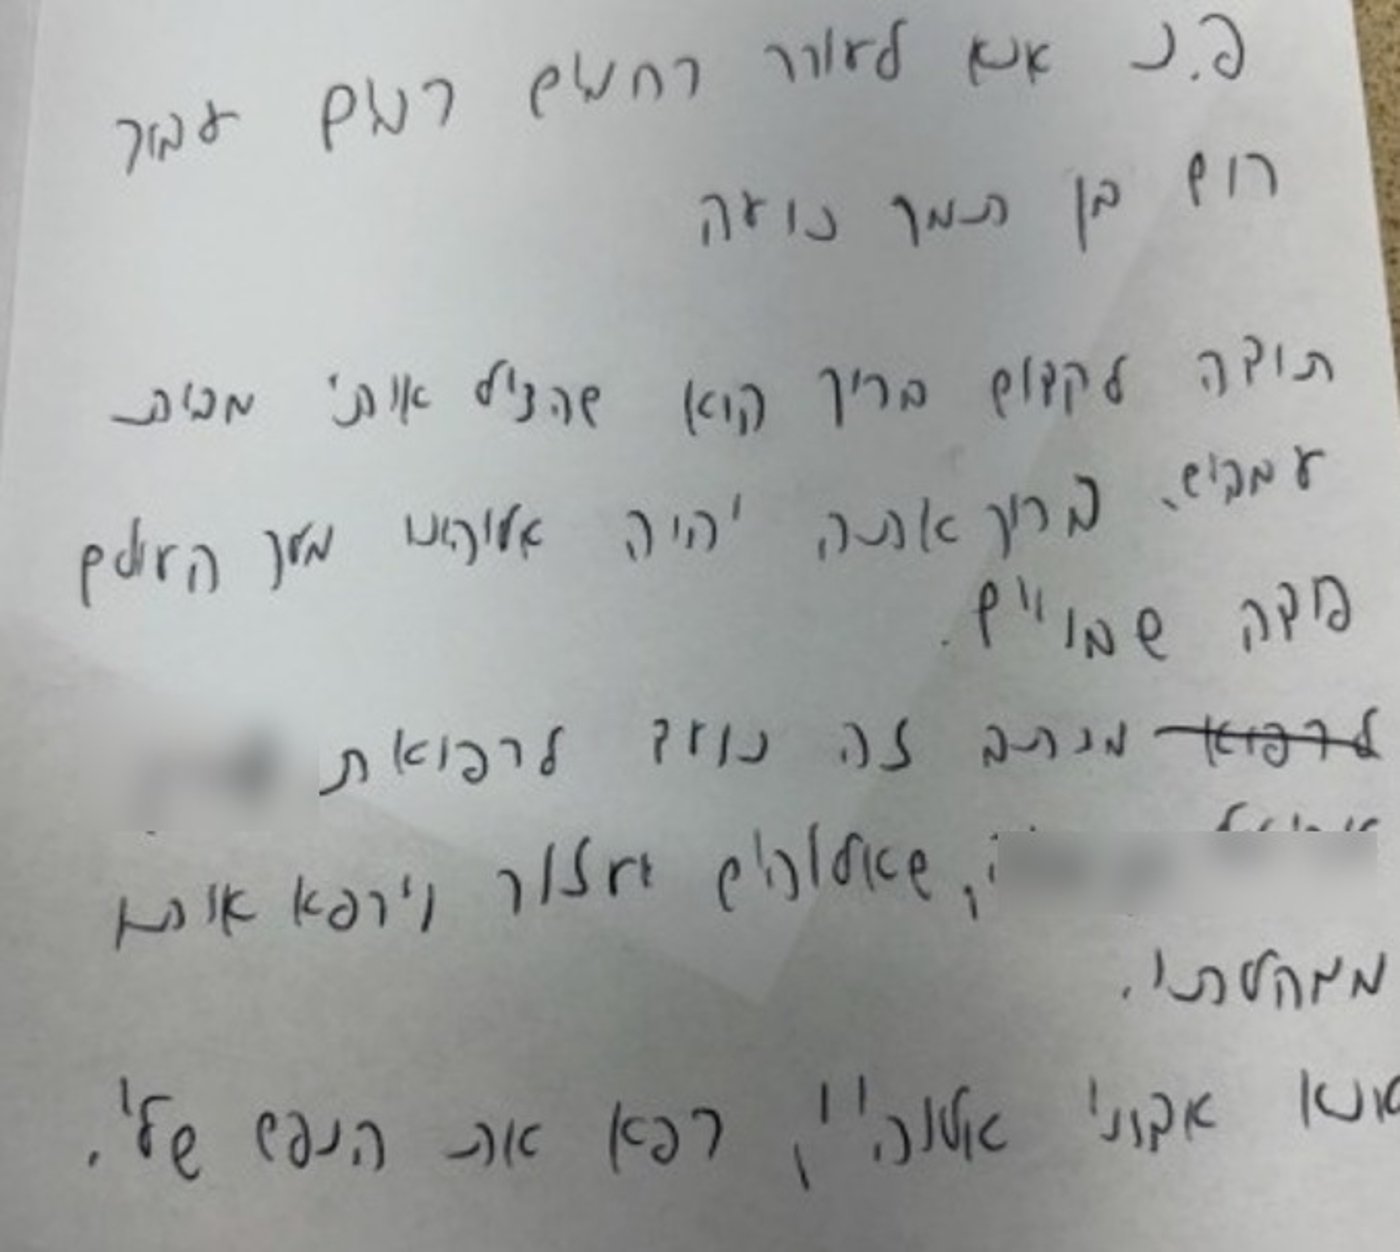 פ.נ אנא לעורר רחמים רבים עבור
רום בן תמר נועה
תודה לקדוש בריך הוא שהציל אותי מכות
עמבים. בריך אתה יהיה אלוהינו מלך העולם
פדה שבויים.
לרפוא מכתב זה נועד לרפואת
, שאלוהים יעזור וירפא אותנו
ממחלתי.
אנא אבוני אלוהיי, רפא את הנפש שלי.